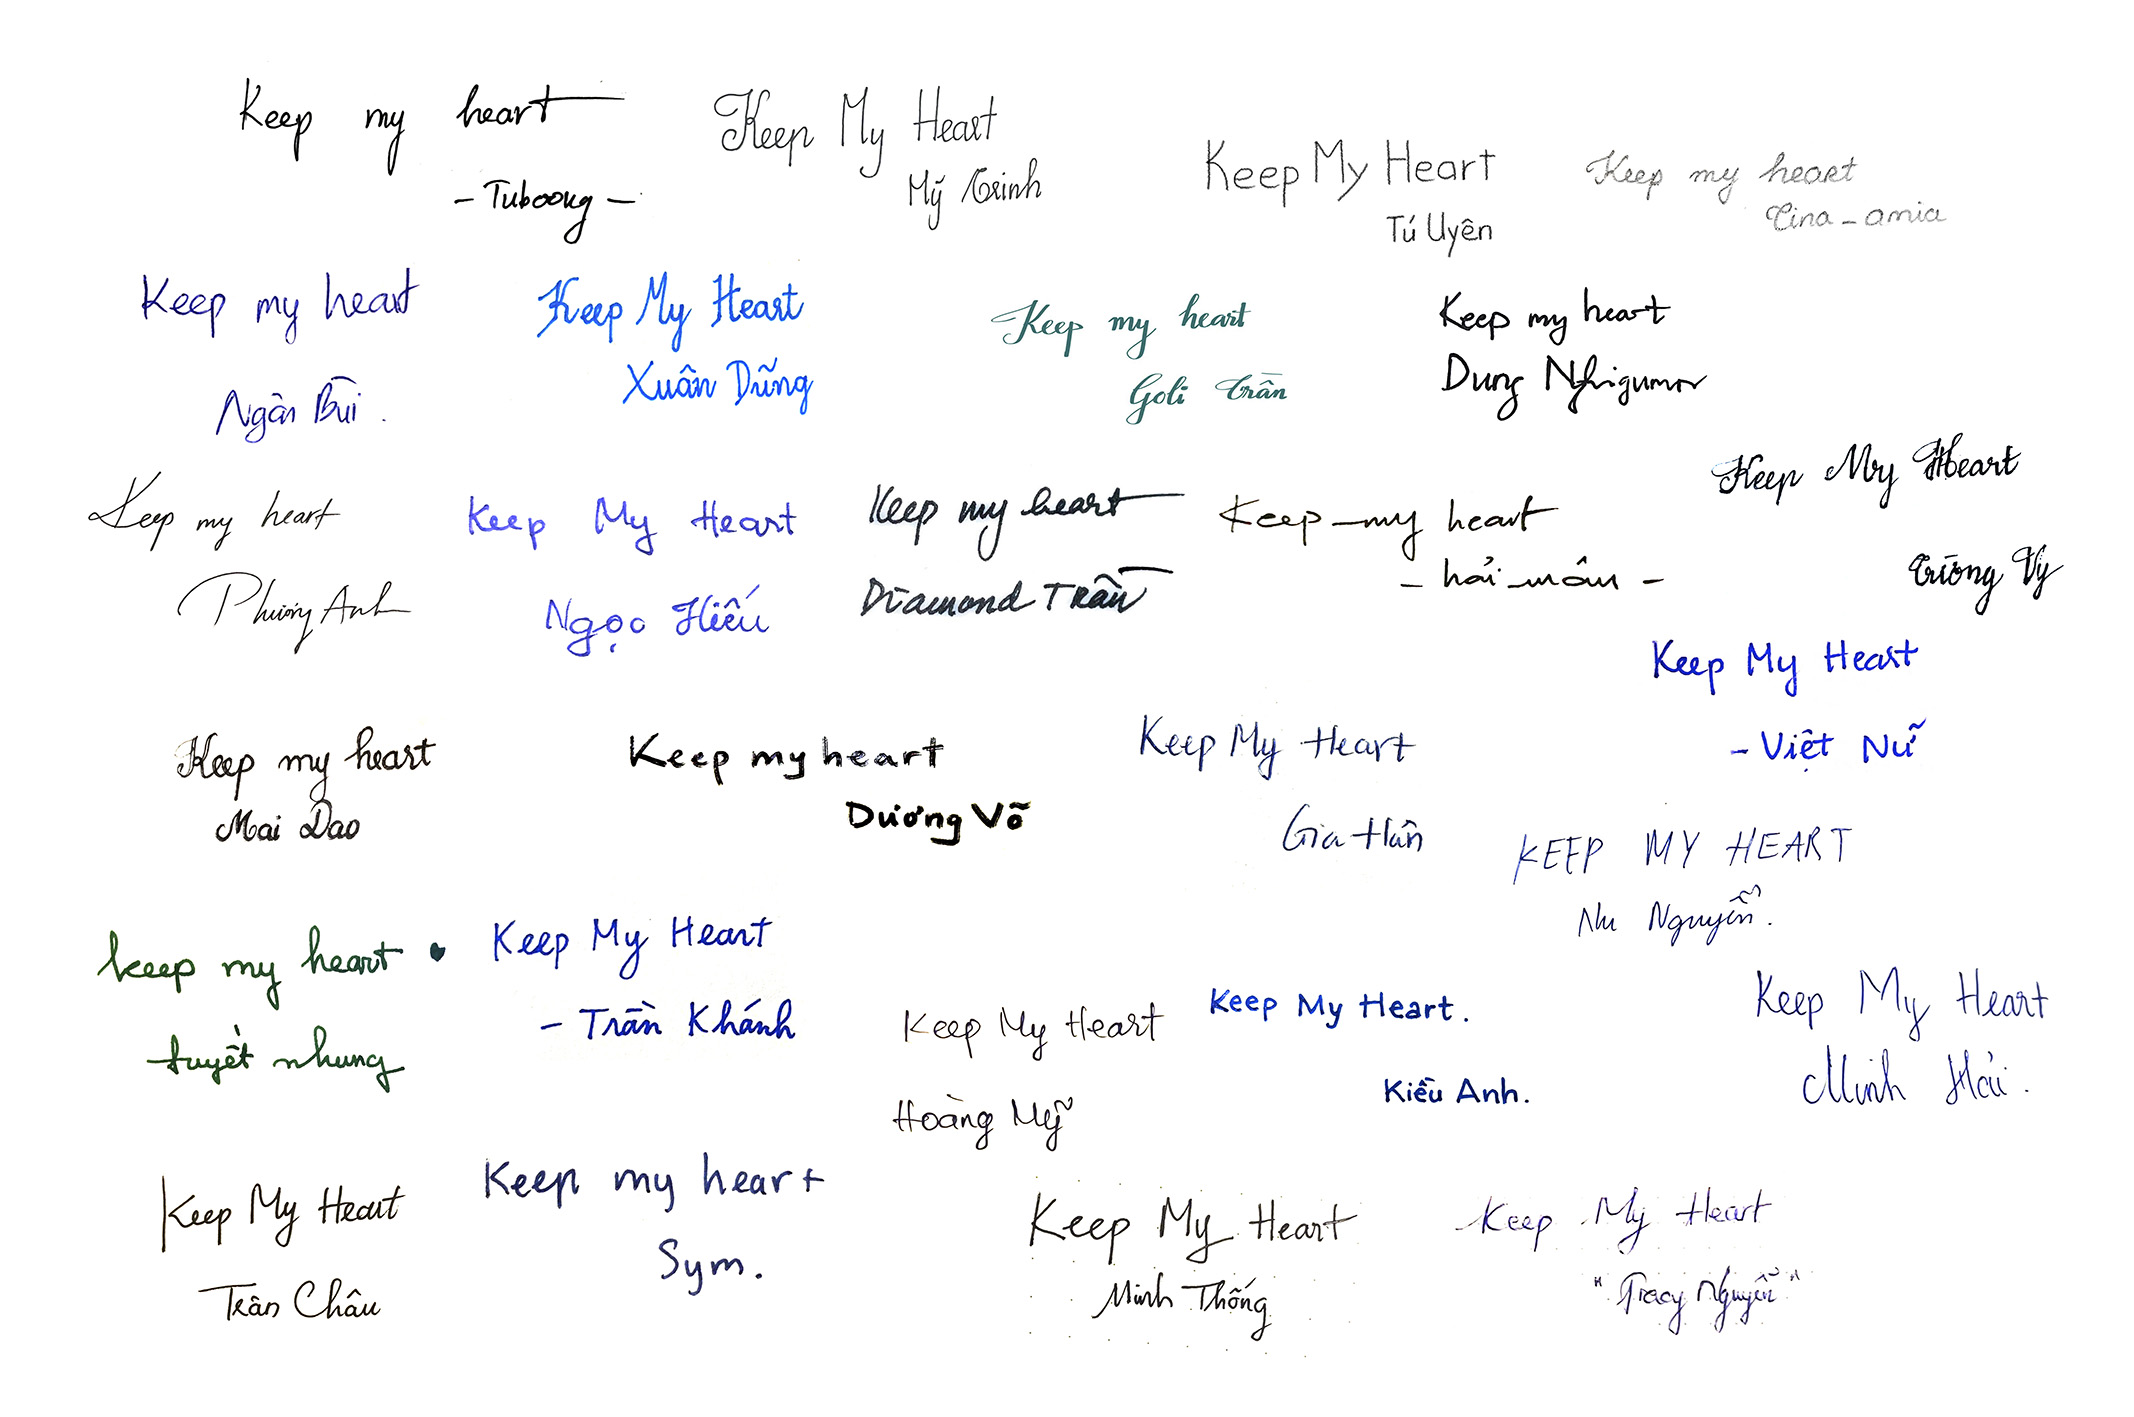 Keep my heart
- Tuboong -
Keep My Heart
Mỹ Trinh
Keep My Heart
Tú Uyên
Keep my heart
Tina - amia
Keep my heart
Ngân Bùi.
Keep My Heart
Xuân Dũng
Keep my heart
Goli Trần
Keep my heart
Dung Nhigumor
Keep my heart
Phương Anh
Keep My Heart
Ngọc Hiếu
Keep my heart
Diamond Trần
Keep my heart
- hải mâu -
Keep My Heart
Trương Vy
Keep My Heart
- Việt Nữ
Keep my heart
Mai Dao
Keep my heart
Dương Võ
Keep My Heart
Gia Hân
KEEP MY HEART
Nu Nguyễn.
keep my heart
tuyết nhung
Keep My Heart
- Trần Khánh
Keep My Heart
Hoàng Mỹ
Keep My Heart.
Kiều Anh.
Keep My Heart
Minh Hải.
Keep My Heart
Trân Châu
Keep my heart
Sym.
Keep My Heart
Minh Thống
Keep My Heart
"Tracy Nguyễn"